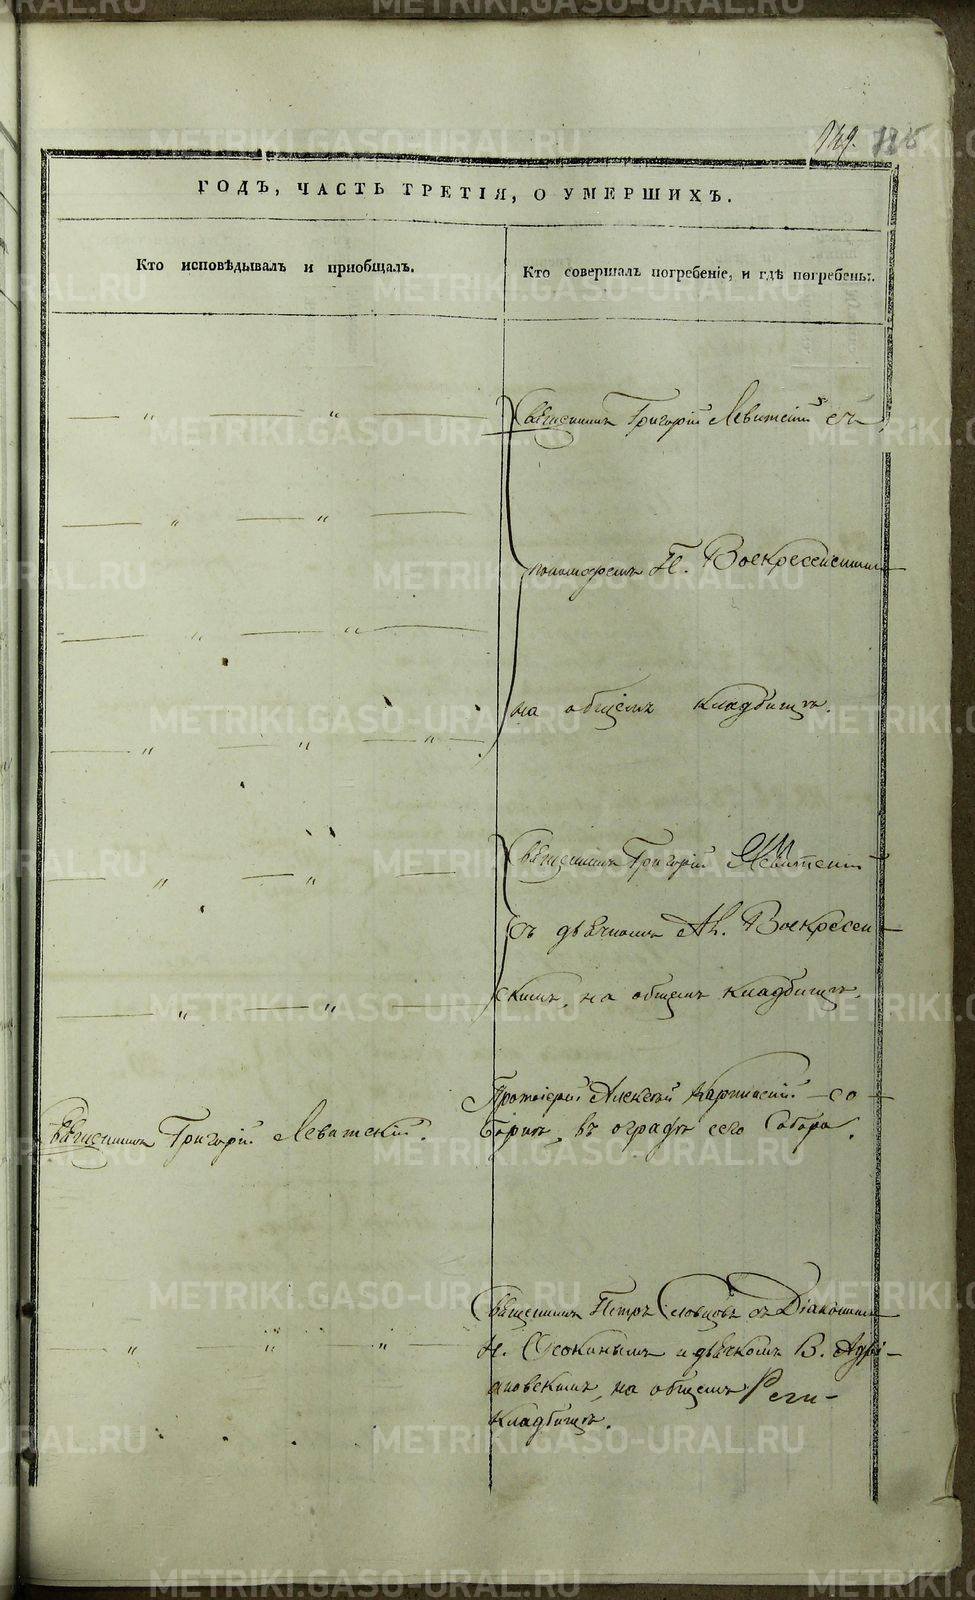 149. 125
ГОДЪ, ЧАСТЬ ТРЕТІЯ, О УМЕРШИХЪ.
Кто исповѣдывалъ и пріобщалъ.
Кто совершалъ погребеніе, и гдѣ погребены.
— " — " — Священникъ Григорій Левитскій съ
— " — " —
пономаремъ Н. Воскресенскимъ
— " — " —
на общемъ кладбищѣ.
— " — " —
— " — " — Священникъ Григорій Левитскій
съ дьячкомъ Ал. Воскресен-
скимъ, на общемъ кладбищѣ.
— " — " —
Протоіерей Алексѣй Карпинскій со-
Священникъ Григорій Левитскій.
борнѣ, въ оградѣ сего Собора.
Священникъ Петръ Словцовъ съ Діакономъ
— " — " — " Н. Осокинымъ и дьячкомъ В. Адрі-
ановскимъ, на общемъ
кладбищѣ.
METRIKI.GASO-URAL.RU